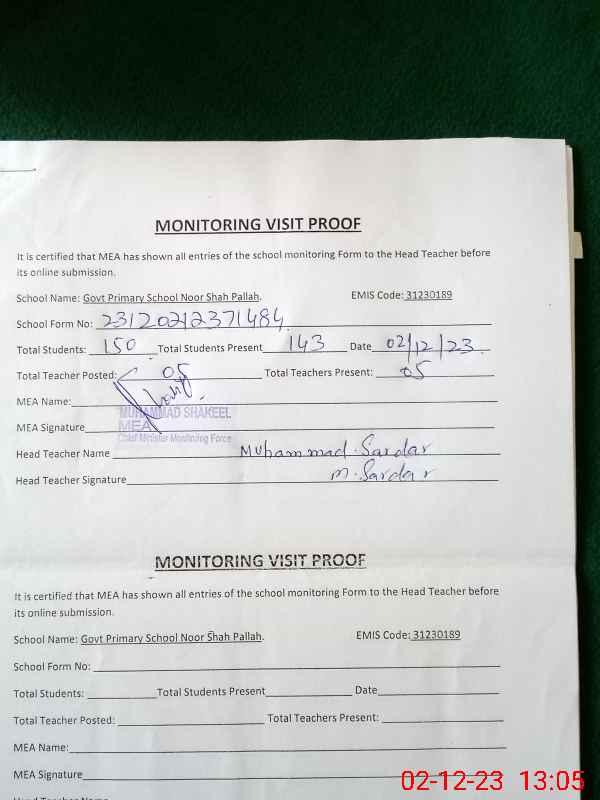 MONITORING VISIT PROOF
It is certified that MEA has shown all entries of the school monitoring Form to the Head Teacher before
its online submission.
School Name: Govt Primary School Noor Shah Pallah. EMIS Code: 31230189
School Form No: 23120212371484
Total Students: 150 Total Students Present 143 Date 02/12/23.
Total Teacher Posted: 05 Total Teachers Present: 05
MEA Name:
MUHAMMAD SHAKEEL
MEA Signature MEA
Chief Minister Monitoring Force
Head Teacher Name Muhammad Sardar
Head Teacher Signature M. Sardar
MONITORING VISIT PROOF
It is certified that MEA has shown all entries of the school monitoring Form to the Head Teacher before
its online submission.
School Name: Govt Primary School Noor Shah Pallah. EMIS Code: 31230189
School Form No:
Total Students: Total Students Present Date
Total Teacher Posted: Total Teachers Present:
MEA Name:
MEA Signature
Head Teacher Name
02-12-23 13:05